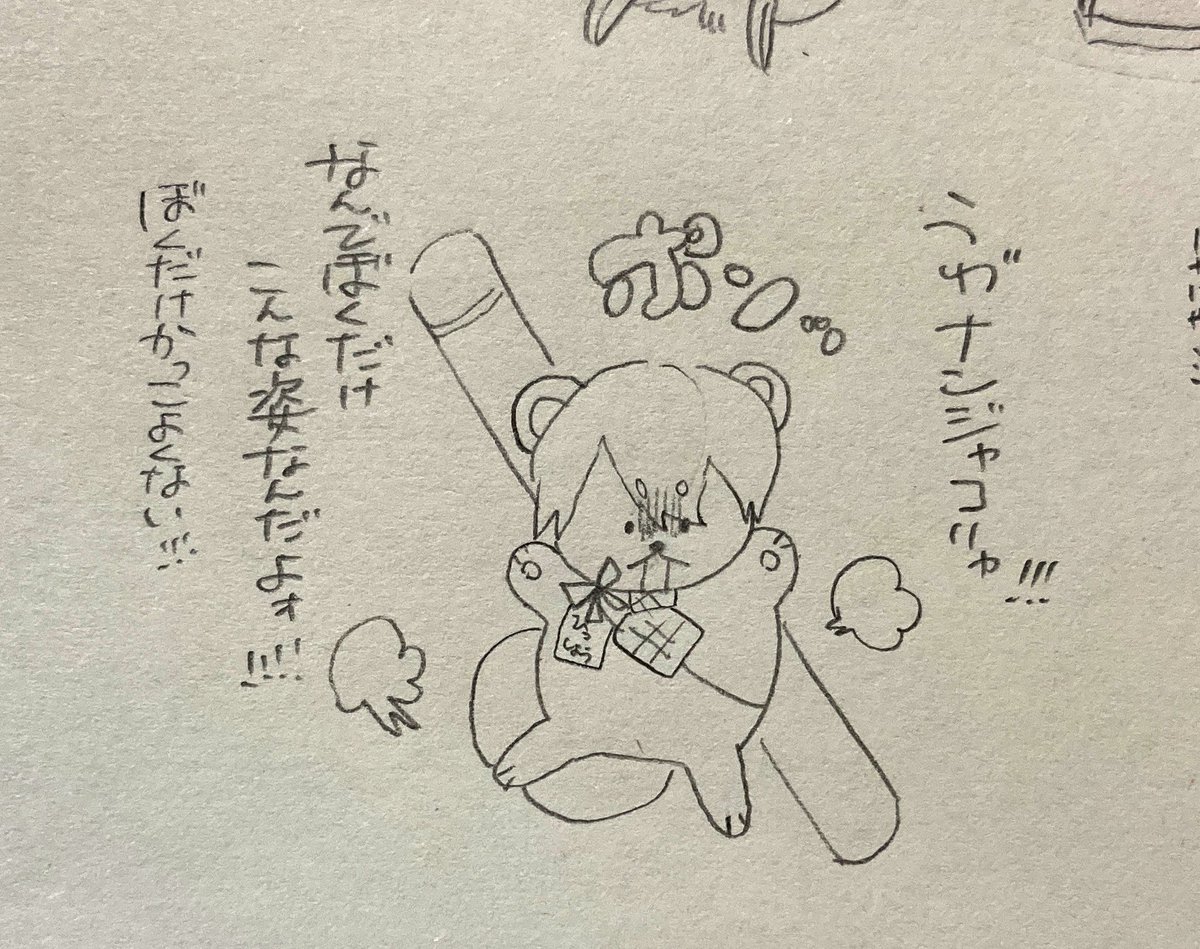 ンガナンジャコニャ!!!
ポ
なんでぼくだけ
こんな姿なんだよォ!!!!
ぼくだけかっこよくない!!!
ひしょう